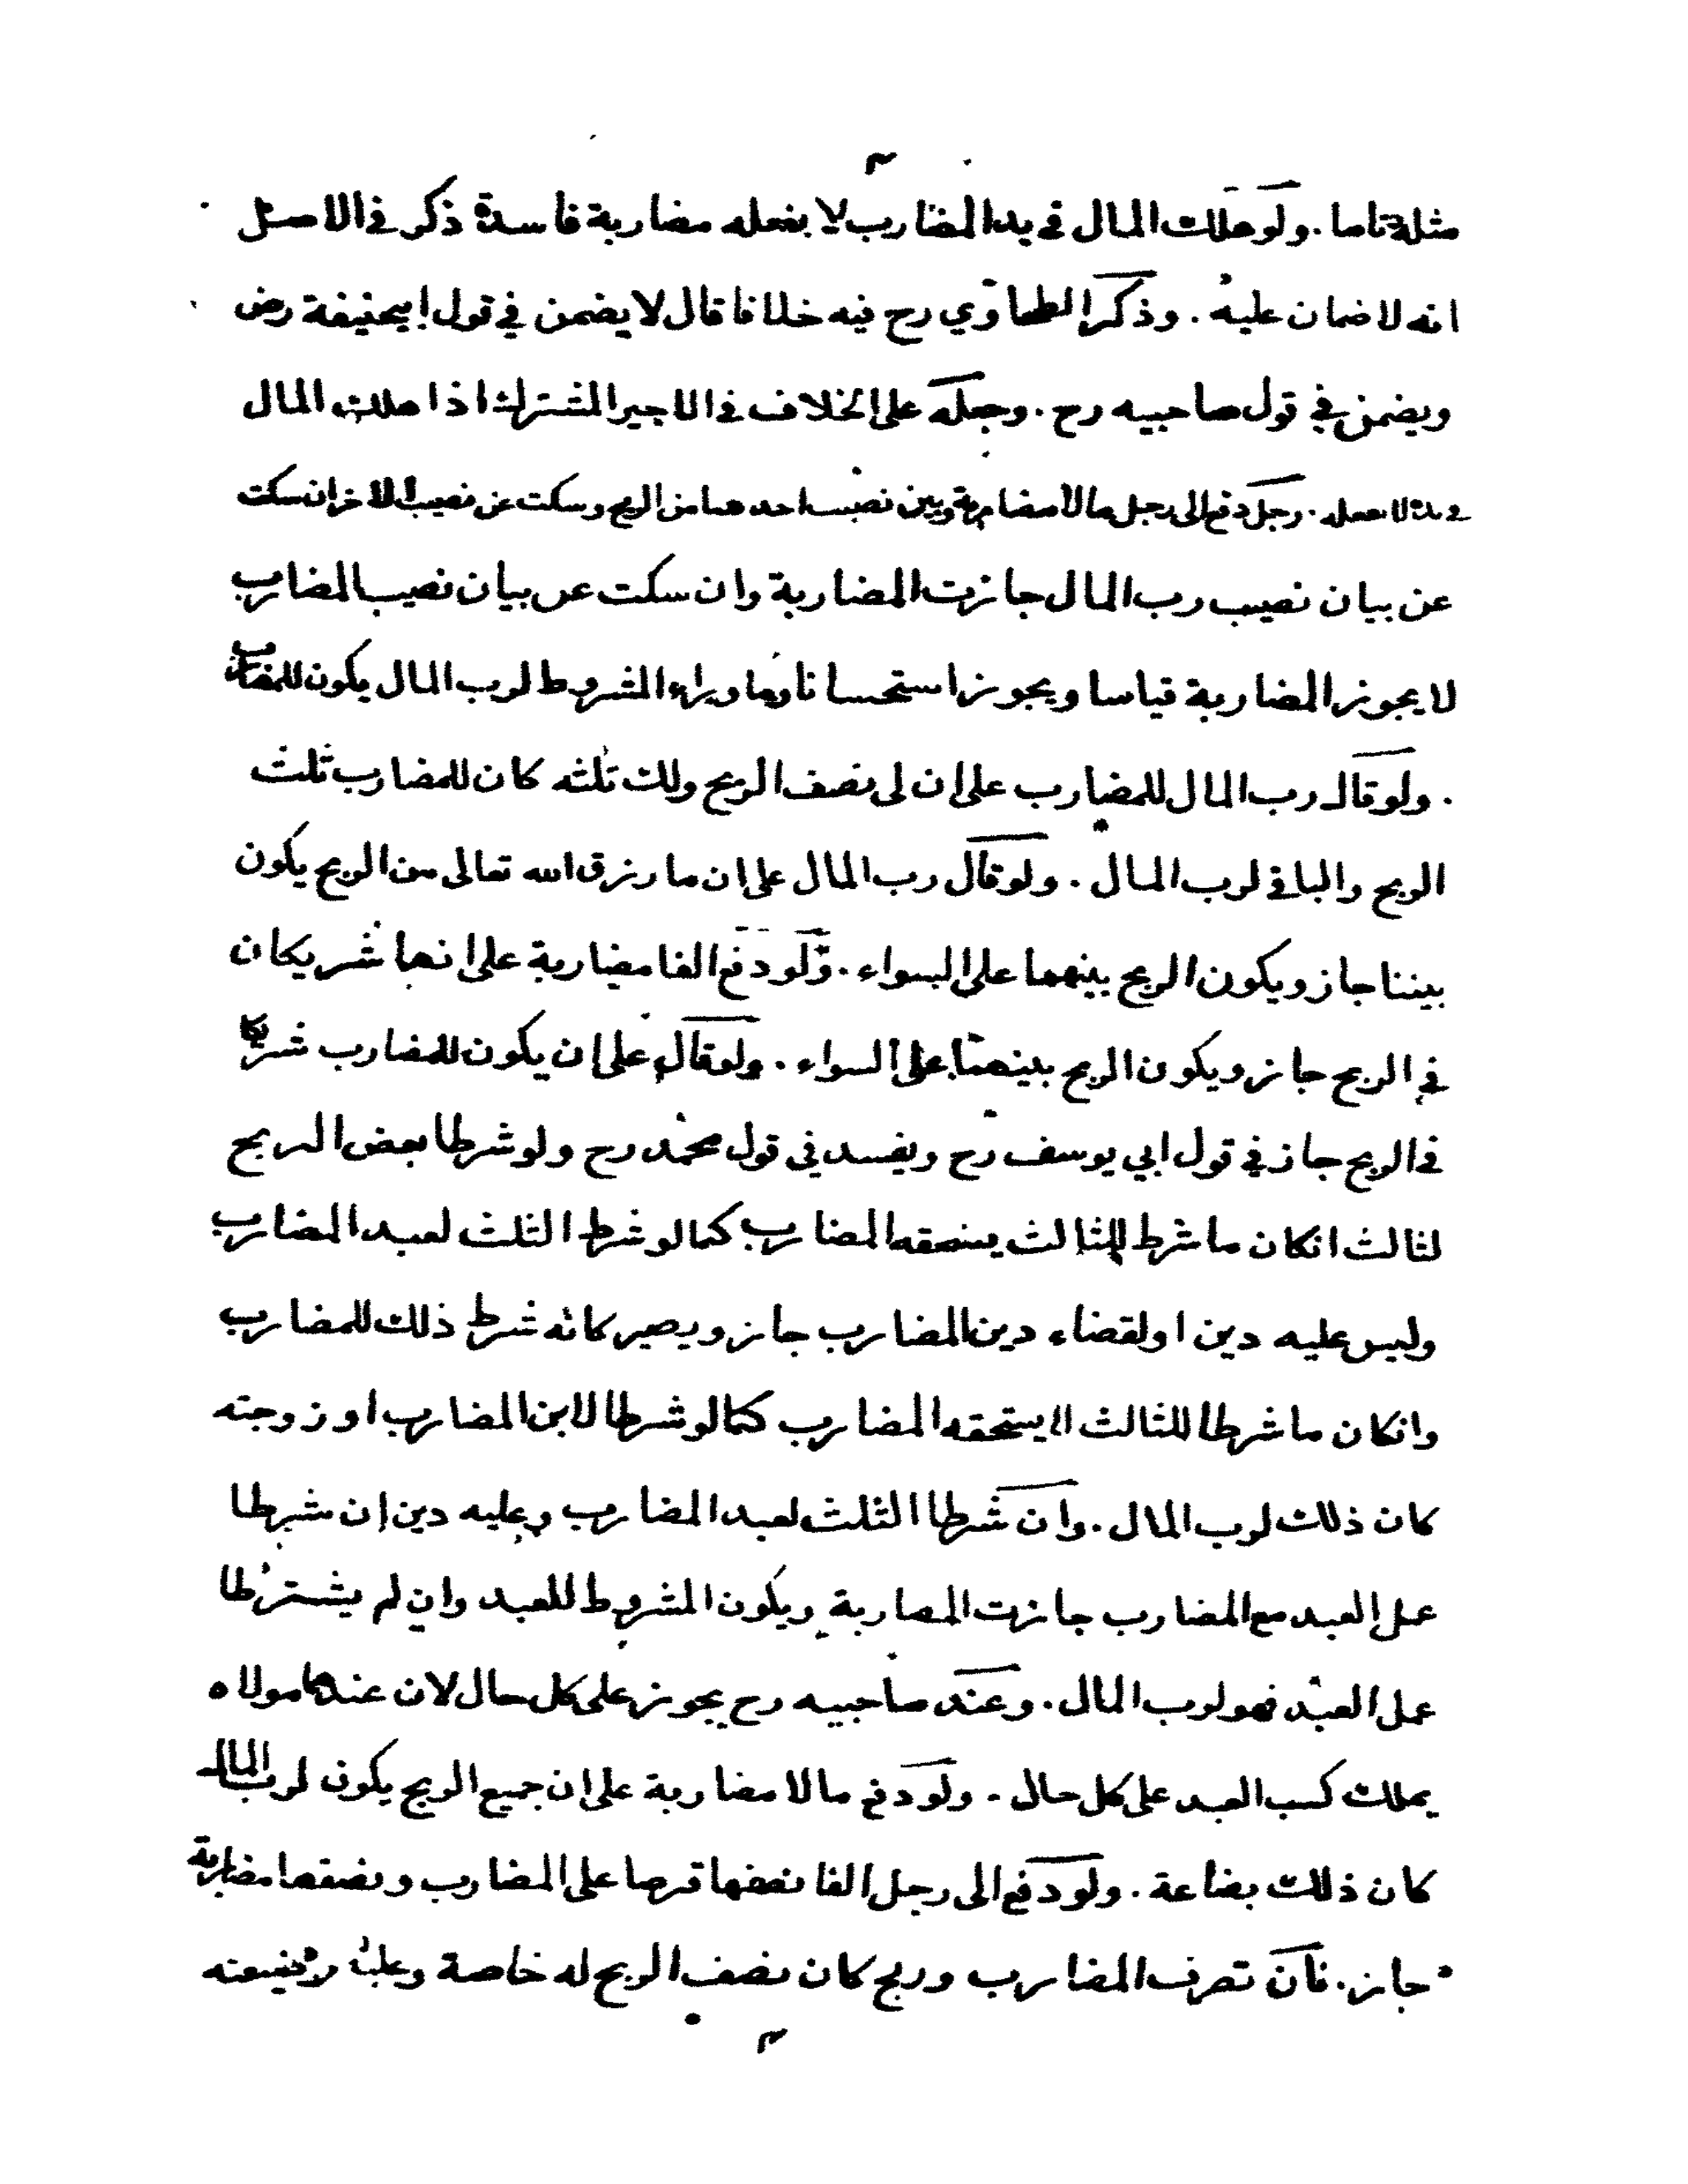 ٣
مثله تاما . ولو هلك المال في يد المضارب لا بفعله مضاربة فاسدة ذكر في الاصل
انه لا ضمان عليه . وذكر الطحاوي رح فيه خلافا قال لا يضمن في قول ابيحنيفة رض
ويضمن في قول صاحبيه رح . وجعله على الخلاف في الاجير المشترك اذا هلك المال
في يده لا بعمله . رجل دفع الى رجل مالا مضاربة وبين نصيب احدهما من الربح وسكت عن نصيب الاخر ان سكت
عن بيان نصيب رب المال جازت المضاربة وان سكت عن بيان نصيب المضارب
لا يجوز المضاربة قياسا ويجوز استحسانا وما وراء المشروط لرب المال يكون للمضارب
. ولو قال رب المال للمضارب على ان لى نصف الربح ولك ثلثه كان للمضارب ثلث
الربح والباقي لرب المال . ولو قال رب المال على ان ما رزق الله تعالى من الربح يكون
بيننا جاز ويكون الربح بينهما على السواء . ولو دفع الفا مضاربة على انهما شريكان
في الربح جاز ويكون الربح بينهما على السواء . ولو قال على ان يكون للمضارب شركا
في الربح جاز في قول ابي يوسف رح ويفسد في قول محمد رح ولو شرطا بعض الربح
لثالث انكان ما شرط للثالث يستحقه المضارب كما لو شرط الثلث لعبد المضارب
وليس عليه دين او لقضاء دين المضارب جاز ويصير كانه شرط ذلك للمضارب
وانكان ما شرطا للثالث لا يستحقه المضارب كما لو شرطا لابن المضارب او زوجته
كان ذلك لرب المال . وان شرطا الثلث لعبد المضارب وعليه دين ان شرطا
عمل العبد مع المضارب جازت المضاربة ويكون المشروط للعبد وان لم يشترطا
عمل العبد فهو لرب المال . وعند صاحبيه رح يجوز على كل حال لان عندهما مولاه
يملك كسب العبد على كل حال . ولو دفع مالا مضاربة على ان جميع الربح يكون لرب المال
كان ذلك بضاعة . ولو دفع الى رجل الفا نصفها قرضا على المضارب ونصفها مضاربة
جاز . فان تصرف المضارب وربح كان نصف الربح له خاصة وعليه وضيعته
٣